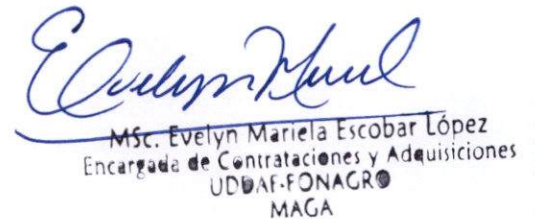 MSc. Evelyn Mariela Escobar López
Encargada de Contrataciones y Adquisiciones
UDDAF-FONAGRO
MAGA